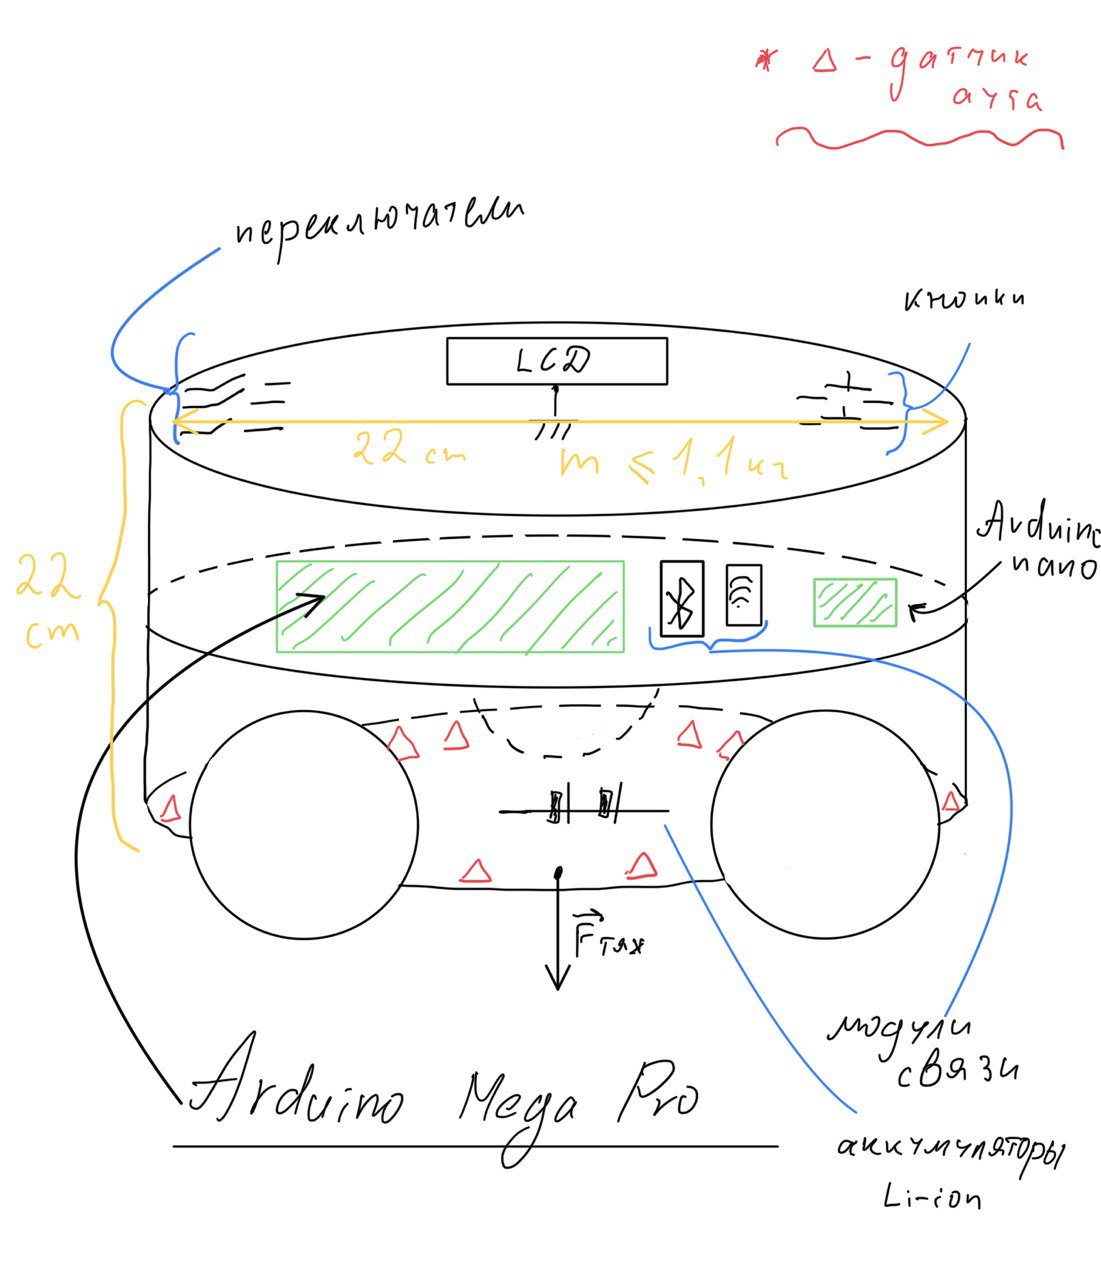 * Δ - датчик
ауга
переключатели
кнопки
LCD
22 cm
m ⩽ 1,1 кг
Arduino
nano
22
cm
Fтяж
модули
связи
Arduino Mega Pro
аккумуляторы
Li-ion